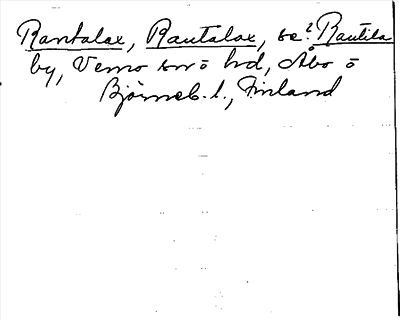 Rantalax, Rautalax, se? Rautila
by, Vemo sn o hd, Åbo o
Björneb. l., Finland